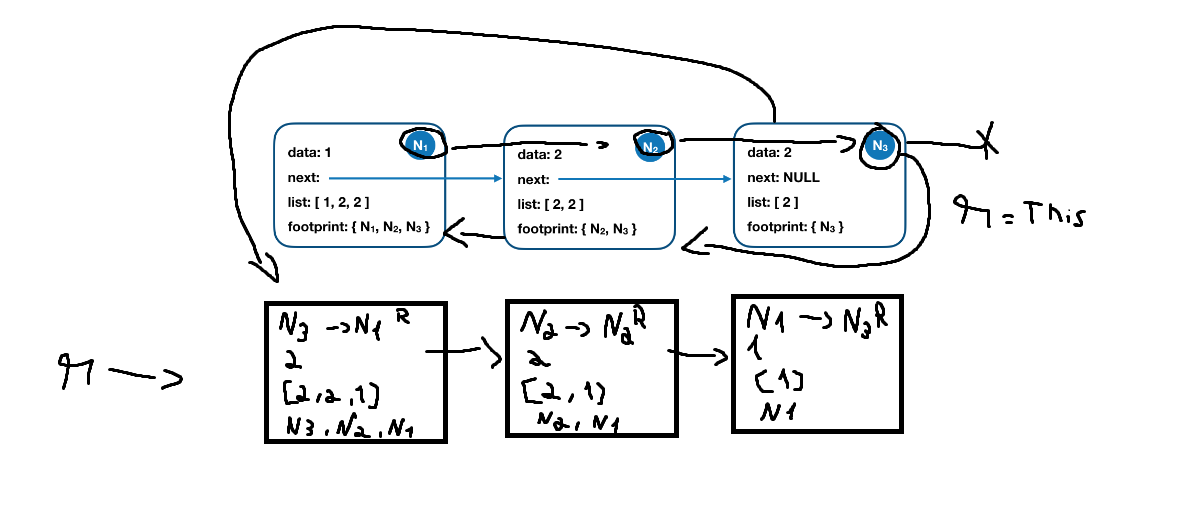 data: 1
N₁
next:
list: [ 1, 2, 2 ]
footprint: { N₁, N₂, N₃ }
data: 2
N₂
next:
list: [ 2, 2 ]
footprint: { N₂, N₃ }
data: 2
N₃
next: NULL
list: [ 2 ]
footprint: { N₃ }
r = This
r
N3 → N1 R
2
[2,2,1]
N3, N2, N1
N2 → N2 R
2
[2,1]
N2, N1
N1 → N3 R
1
[1]
N1